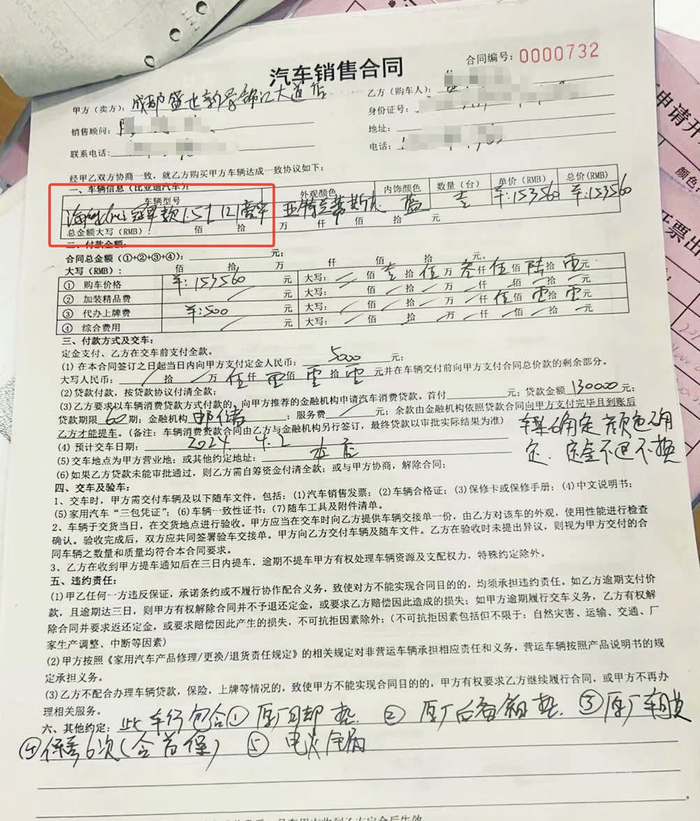 合同编号：0000732
汽车销售合同
甲方（卖方）：成都盛世新景锦江大道店
乙方（购车人）：
身份证号：
销售顾问：
地址：
联系电话：
电话：
经甲乙双方协商一致，就乙方购买甲方车辆达成一致协议如下：
一、车辆信息（比亚迪汽车）
车辆型号 外观颜色 内饰颜色 数量（台） 单价（RMB） 总价（RMB）
冠军款 1.5T 121 亚特兰蒂斯 蓝 壹 ¥:153560 ¥:153560
总金额大写（RMB）： 佰 拾
二、付款金额：
合同总金额（①+②+③+④）： 元；
大写（RMB）： 佰 拾 万 仟 佰 拾 元
① 购车价格 ¥:153560 元 大写： 佰 壹 拾 伍 万 叁 仟 伍 佰 陆 拾 零 元
② 加装精品费 元 大写： 佰 拾 万 仟 佰 拾 元
③ 代办上牌费 ¥:500 元 大写： 佰 拾 万 仟 伍 佰 零 拾 零 元
④ 综合费用 元 大写： 佰 拾 万 仟 佰 拾 元
三、付款方式及交车：
定金支付、乙方在交车前支付全款。
(1) 在本合同签订之日起当日内向甲方支付定金人民币： 5000 元；
大写人民币： 拾 万 伍 仟 零 佰 零 拾 零 元并在车辆交付前向甲方支付合同总价款的剩余部分。
(2) 贷款付款，按贷款协议付清全款；
(3) 乙方要求以车辆消费贷款方式付款的，向甲方推荐的金融机构申请汽车消费贷款。首付 元，贷款金额 130000 元；
贷款期限 60 期；金融机构 邮储；服务费 元；余款由金融机构依照贷款合同向甲方支付完毕且到账后
乙方才能提车。（备注：车辆消费贷款合同由乙方与金融机构另行签订，最终贷款以审批实际结果为准）
(4) 预计交车日期： 2024 4.2
(5) 交车地点为甲方营业地；或其他约定地址： 本店
(6) 如果乙方贷款未能审批通过，则乙方需自筹资金付清全款；或与甲方协商，解除合同；
车型确定 颜色确
定，定金不退不换
四、交车及验车：
1、交车时，甲方需交付车辆及以下随车文件，包括：(1)汽车销售发票；(2)车辆合格证；(3)保修卡或保修手册；(4)中文说明书；
(5)家用汽车“三包凭证”；(6)车辆一致性证书；(7)随车工具及附件清单。
2、车辆于交货当日，在交货地点进行验收。甲方应当在交车时向乙方提供车辆交接单一份，由乙方对该车的外观，使用性能进行检查
确认。验收完成后，双方应共同签署验车交接单。甲方向乙方交付车辆及随车文件。乙方在验收时未提出异议，则视为甲方交付的合
同车辆之数量和质量均符合本合同要求。
3、乙方在收到甲方提车通知后在三日内提车，逾期不提车甲方有权处理车辆资源及支配权力，特殊约定除外。
五、违约责任：
(1)甲乙任何一方违反保证，承诺条约或不履行协作配合义务，致使对方不能实现合同目的的，均须承担违约责任。如乙方逾期支付价
款，且逾期达三日，则甲方有权解除合同并不予退还定金，或要求乙方赔偿因此造成的损失；如甲方逾期履行交车义务，乙方有权解
除合同并要求返还定金，或要求甲方赔偿因此产生的损失，不可抗拒因素除外；（不可抗拒因素包括但不限于：自然灾害、运输、交通、厂
家生产调整、中断等因素）
(2)甲方按照《家用汽车产品修理/更换/退货责任规定》的相关规定对非营运车辆承担相应责任和义务，营运车辆按照产品说明书的规
定承担义务。
(3)乙方不配合办理车辆贷款，保险，上牌等情况的，致使甲方不能实现合同目的的，甲方有权要求乙方继续履行合同，或甲方不再办
理相关服务。
六、其他约定：此车行包含① 原厂脚垫 ② 原厂后备箱垫 ③ 原厂车
④ 保养6次（含首保） ⑤
申请开
颜色
票出